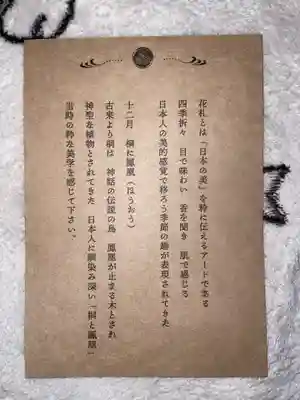 花札とは「日本の美」を粋に伝えるアートである
四季折々 目で味わい 音を聞き 肌で感じる
日本人の美的感覚で移ろう季節の趣が表現されてきた
十二月 桐に鳳凰(ほうおう)
古来より桐は 神話の伝説の鳥 鳳凰が止まる木とされ
神聖な植物とされてきた 日本人に馴染み深い「桐と鳳凰」
当時の粋な美学を感じて下さい。